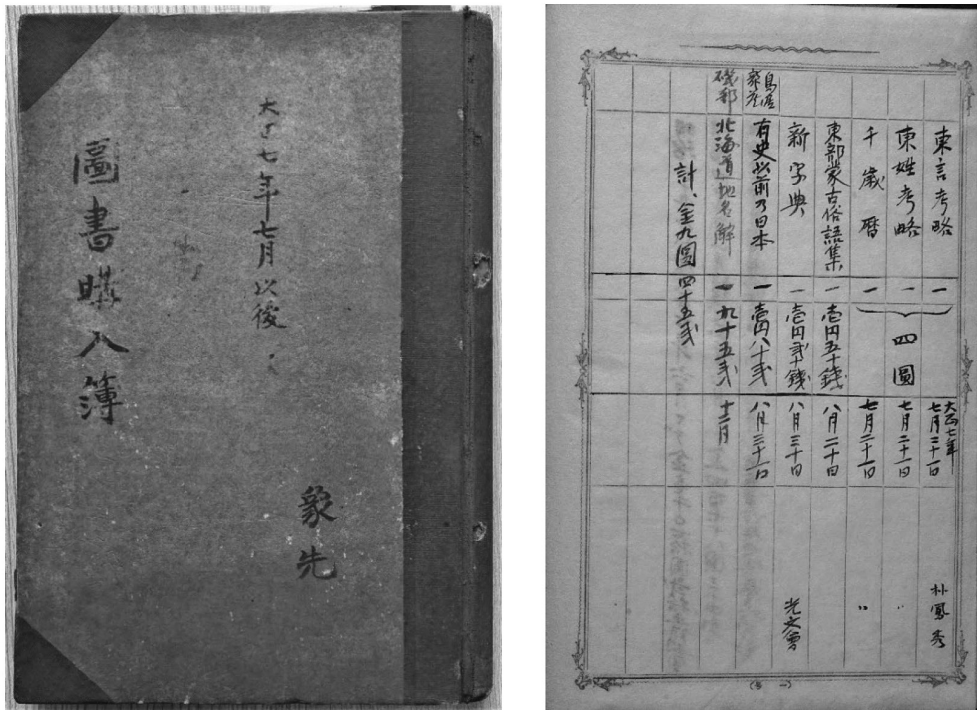 大正七年七月以後
圖書購入簿
象先
東言考略 一 大正七年七月二十一日 朴鳳秀
東姓考略 一 四圓 七月二十一日 〃
千歲曆 一 七月二十一日 〃
東部蒙古俗語集 一 壱円五十錢 八月二十日
新字典 一 壱円弐十錢 八月三十日 光文會
鳥居龍藏 有史以前乃日本 一 壱円八十戔 八月三十一日
磯部 北海道地名解 一 九十五戔 十二月
計、金九圓四十五戔